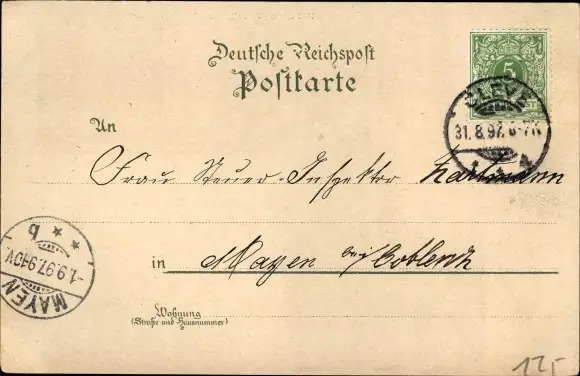 Deutsche Reichspost
Postkarte
5
CLEVE
31.8.97. 6-7N
An
Frau Steuer-Inspektor Hartmann
in Mayen bei Coblenz
MAYEN
-1.9.97.9-10V
* * b
Wohnung
(Straße und Hausnummer)
12,-